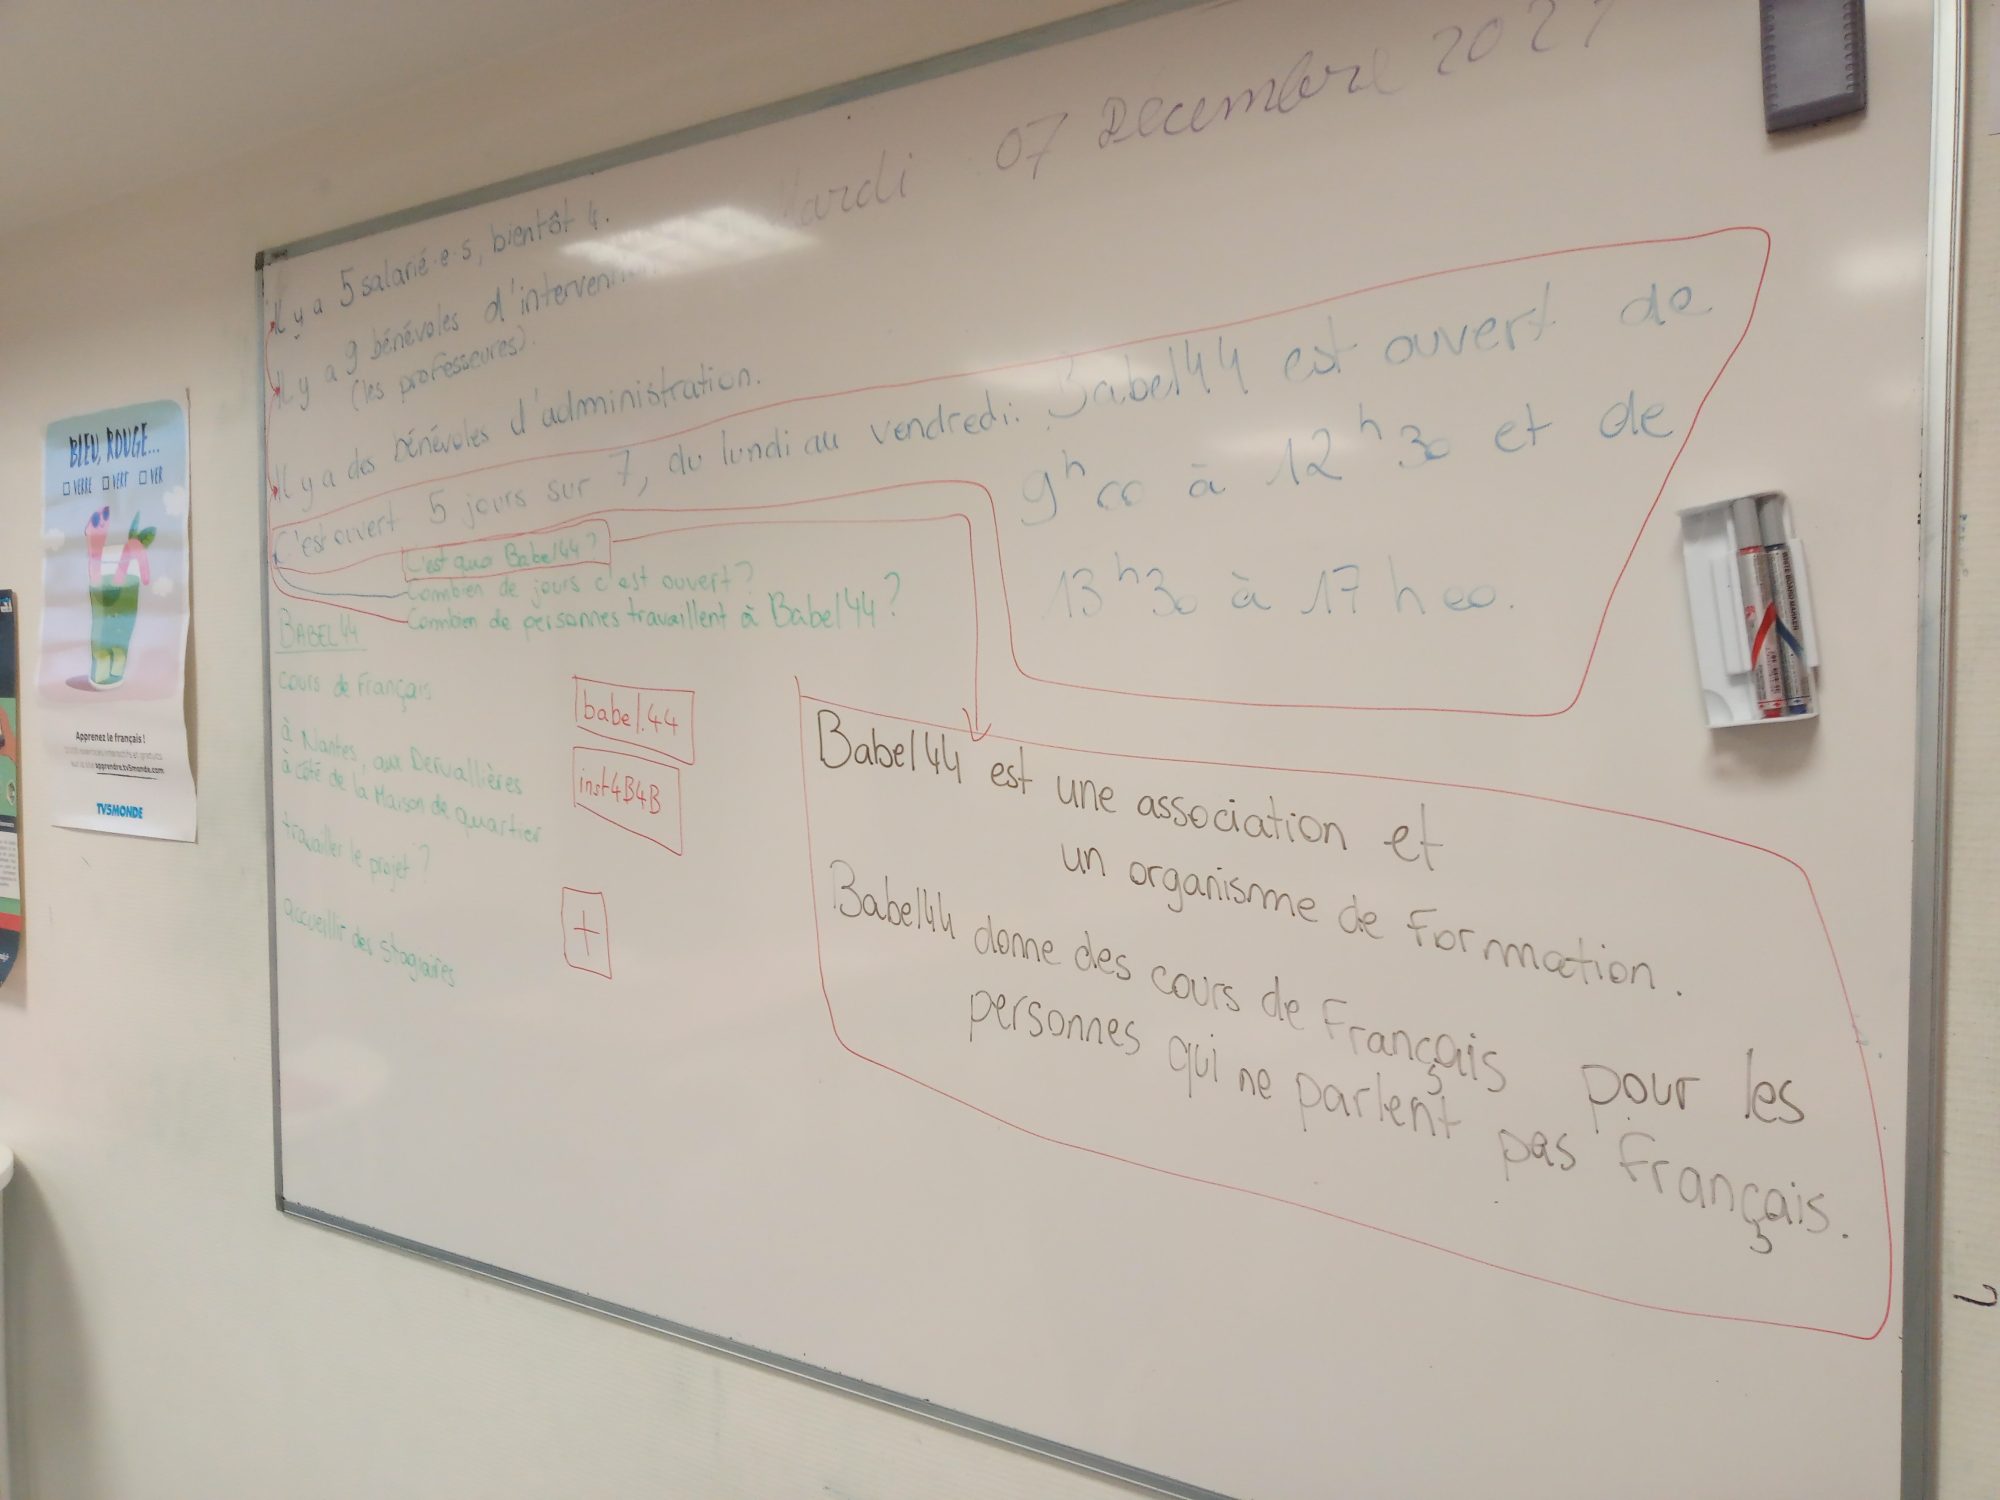 Mardi 07 Decembre 2021
Il y a 5 salarié·e·s, bientôt 4.
Il y a 9 bénévoles d'intervention
(les professeures).
Il y a des bénévoles d'administration.
C'est ouvert 5 jours sur 7, du lundi au vendredi. Babel44 est ouvert de
9h00 à 12h30 et de
13h30 à 17h00.
C'est quoi Babel44 ?
Combien de jours c'est ouvert ?
Combien de personnes travaillent à Babel44 ?
BABEL44
cours de Français
à Nantes, aux Dervallières
à côté de la Maison de quartier
travailler le projet ?
accueillir des stagiaires
babel.44
inst4B4B
+
Babel44 est une association et
un organisme de Formation.
Babel44 donne des cours de Français pour les
personnes qui ne parlent pas Français.
BLEU, ROUGE...
VERRE VERT VER
Apprenez le français !
apprendre.tv5monde.com
TV5MONDE